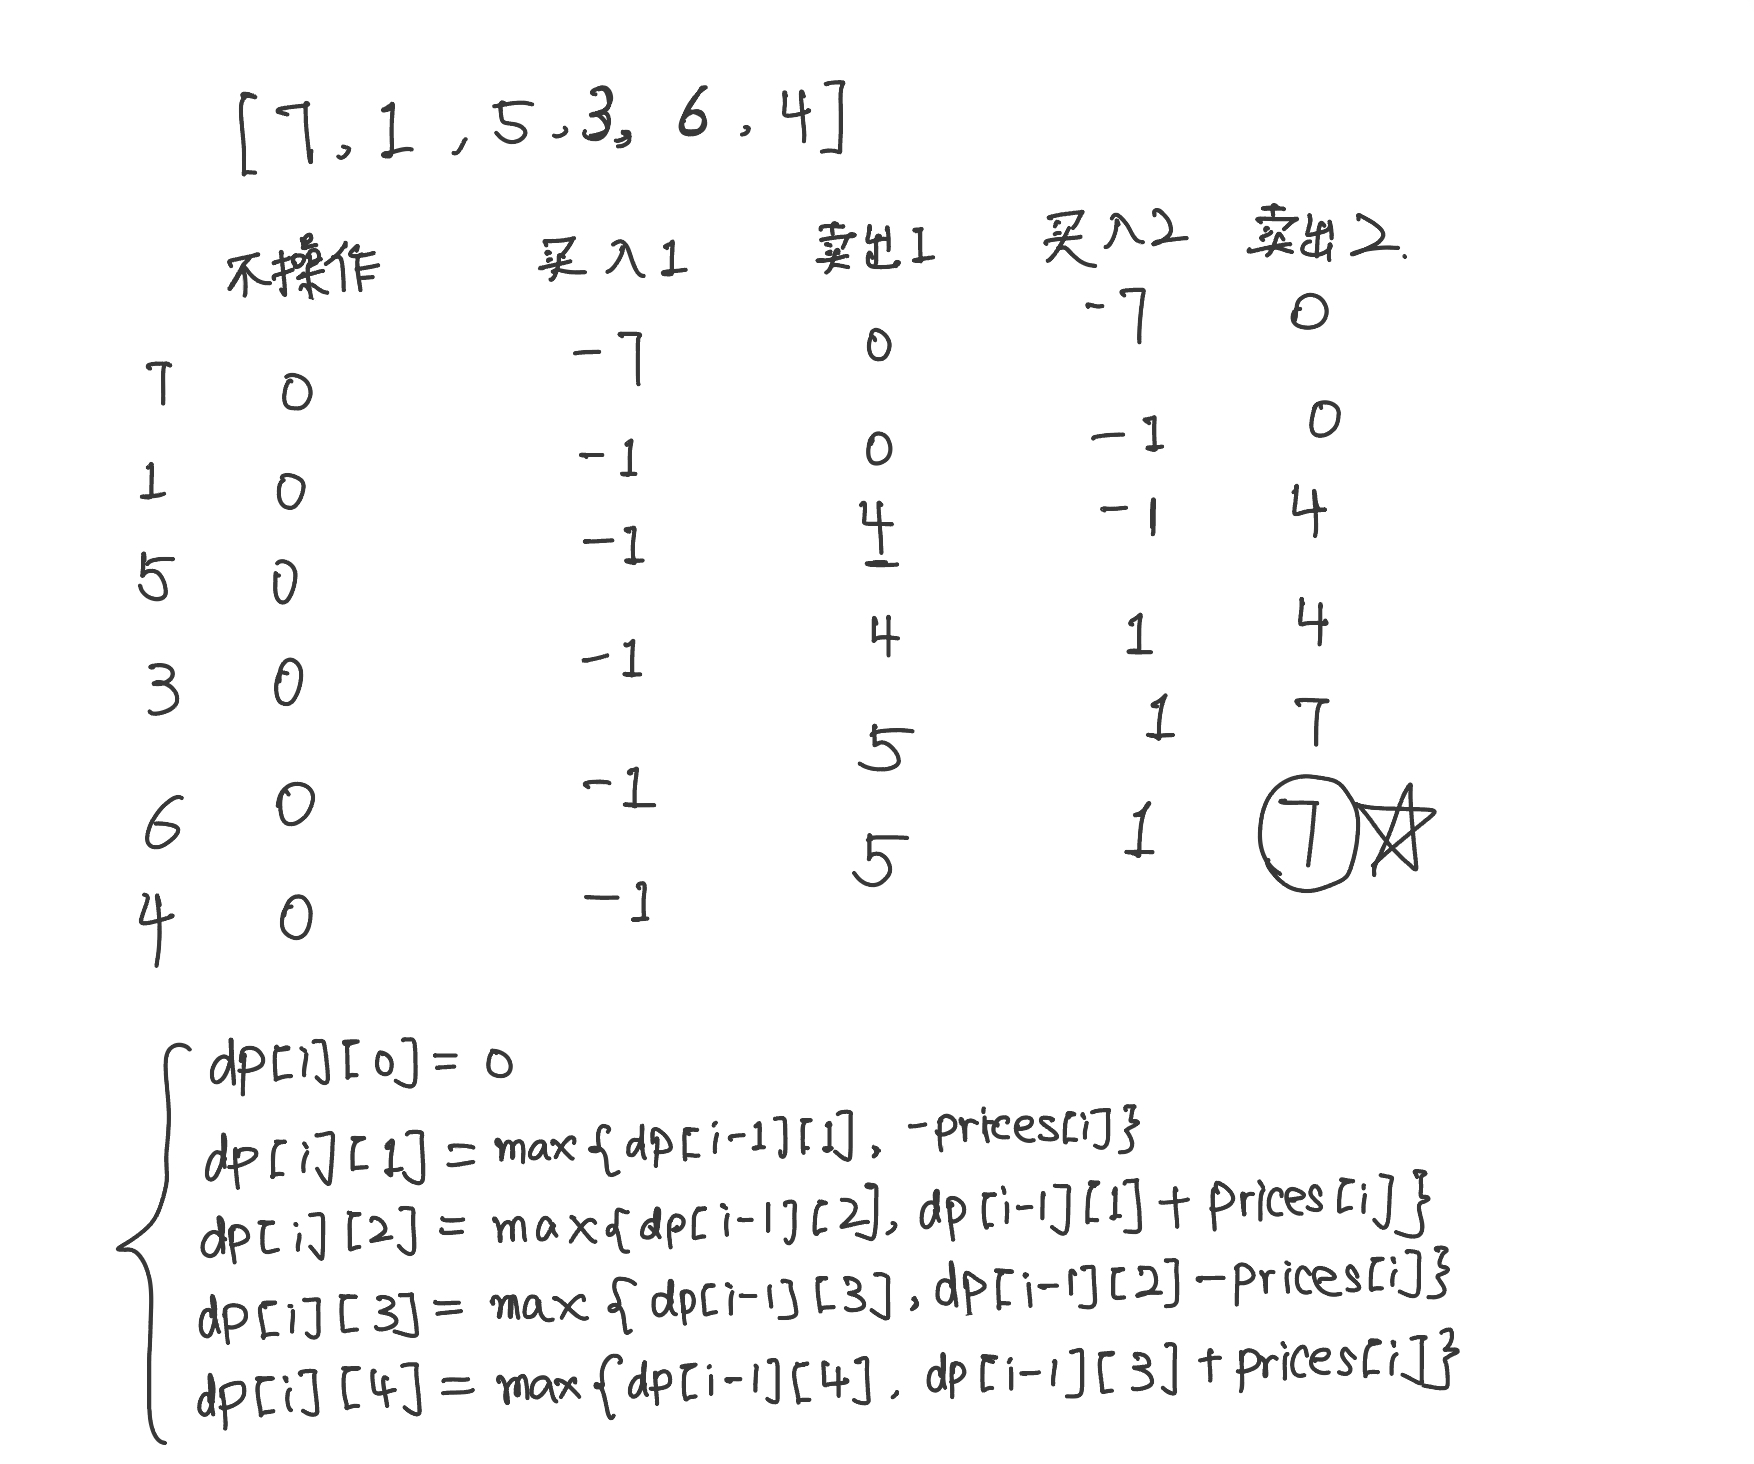 [7, 1, 5, 3, 6, 4]
不操作 买入1 卖出1 买入2 卖出2.
7 0 -7 0 -7 0
1 0 -1 0 -1 0
5 0 -1 4 -1 4
3 0 -1 4 1 4
6 0 -1 5 1 7
4 0 -1 5 1 7
dp[i][0] = 0
dp[i][1] = max{dp[i-1][1], -prices[i]}
dp[i][2] = max{dp[i-1][2], dp[i-1][1]+prices[i]}
dp[i][3] = max{dp[i-1][3], dp[i-1][2]-prices[i]}
dp[i][4] = max{dp[i-1][4], dp[i-1][3]+prices[i]}